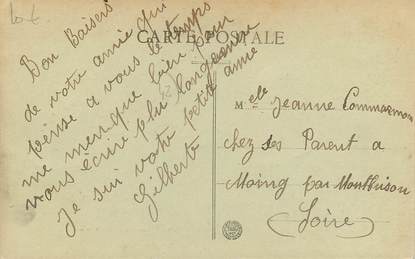 10 €
CARTE POSTALE
Bon Baisers
de votre amie qui
pense a vous le temps
me manque bien pour
vous écrire plu longuement
Je sui votre petite amie
Gilberte
Melle Jeanne Commarmon
chez ses Parent a
Moing par Montbrison
(Loire)